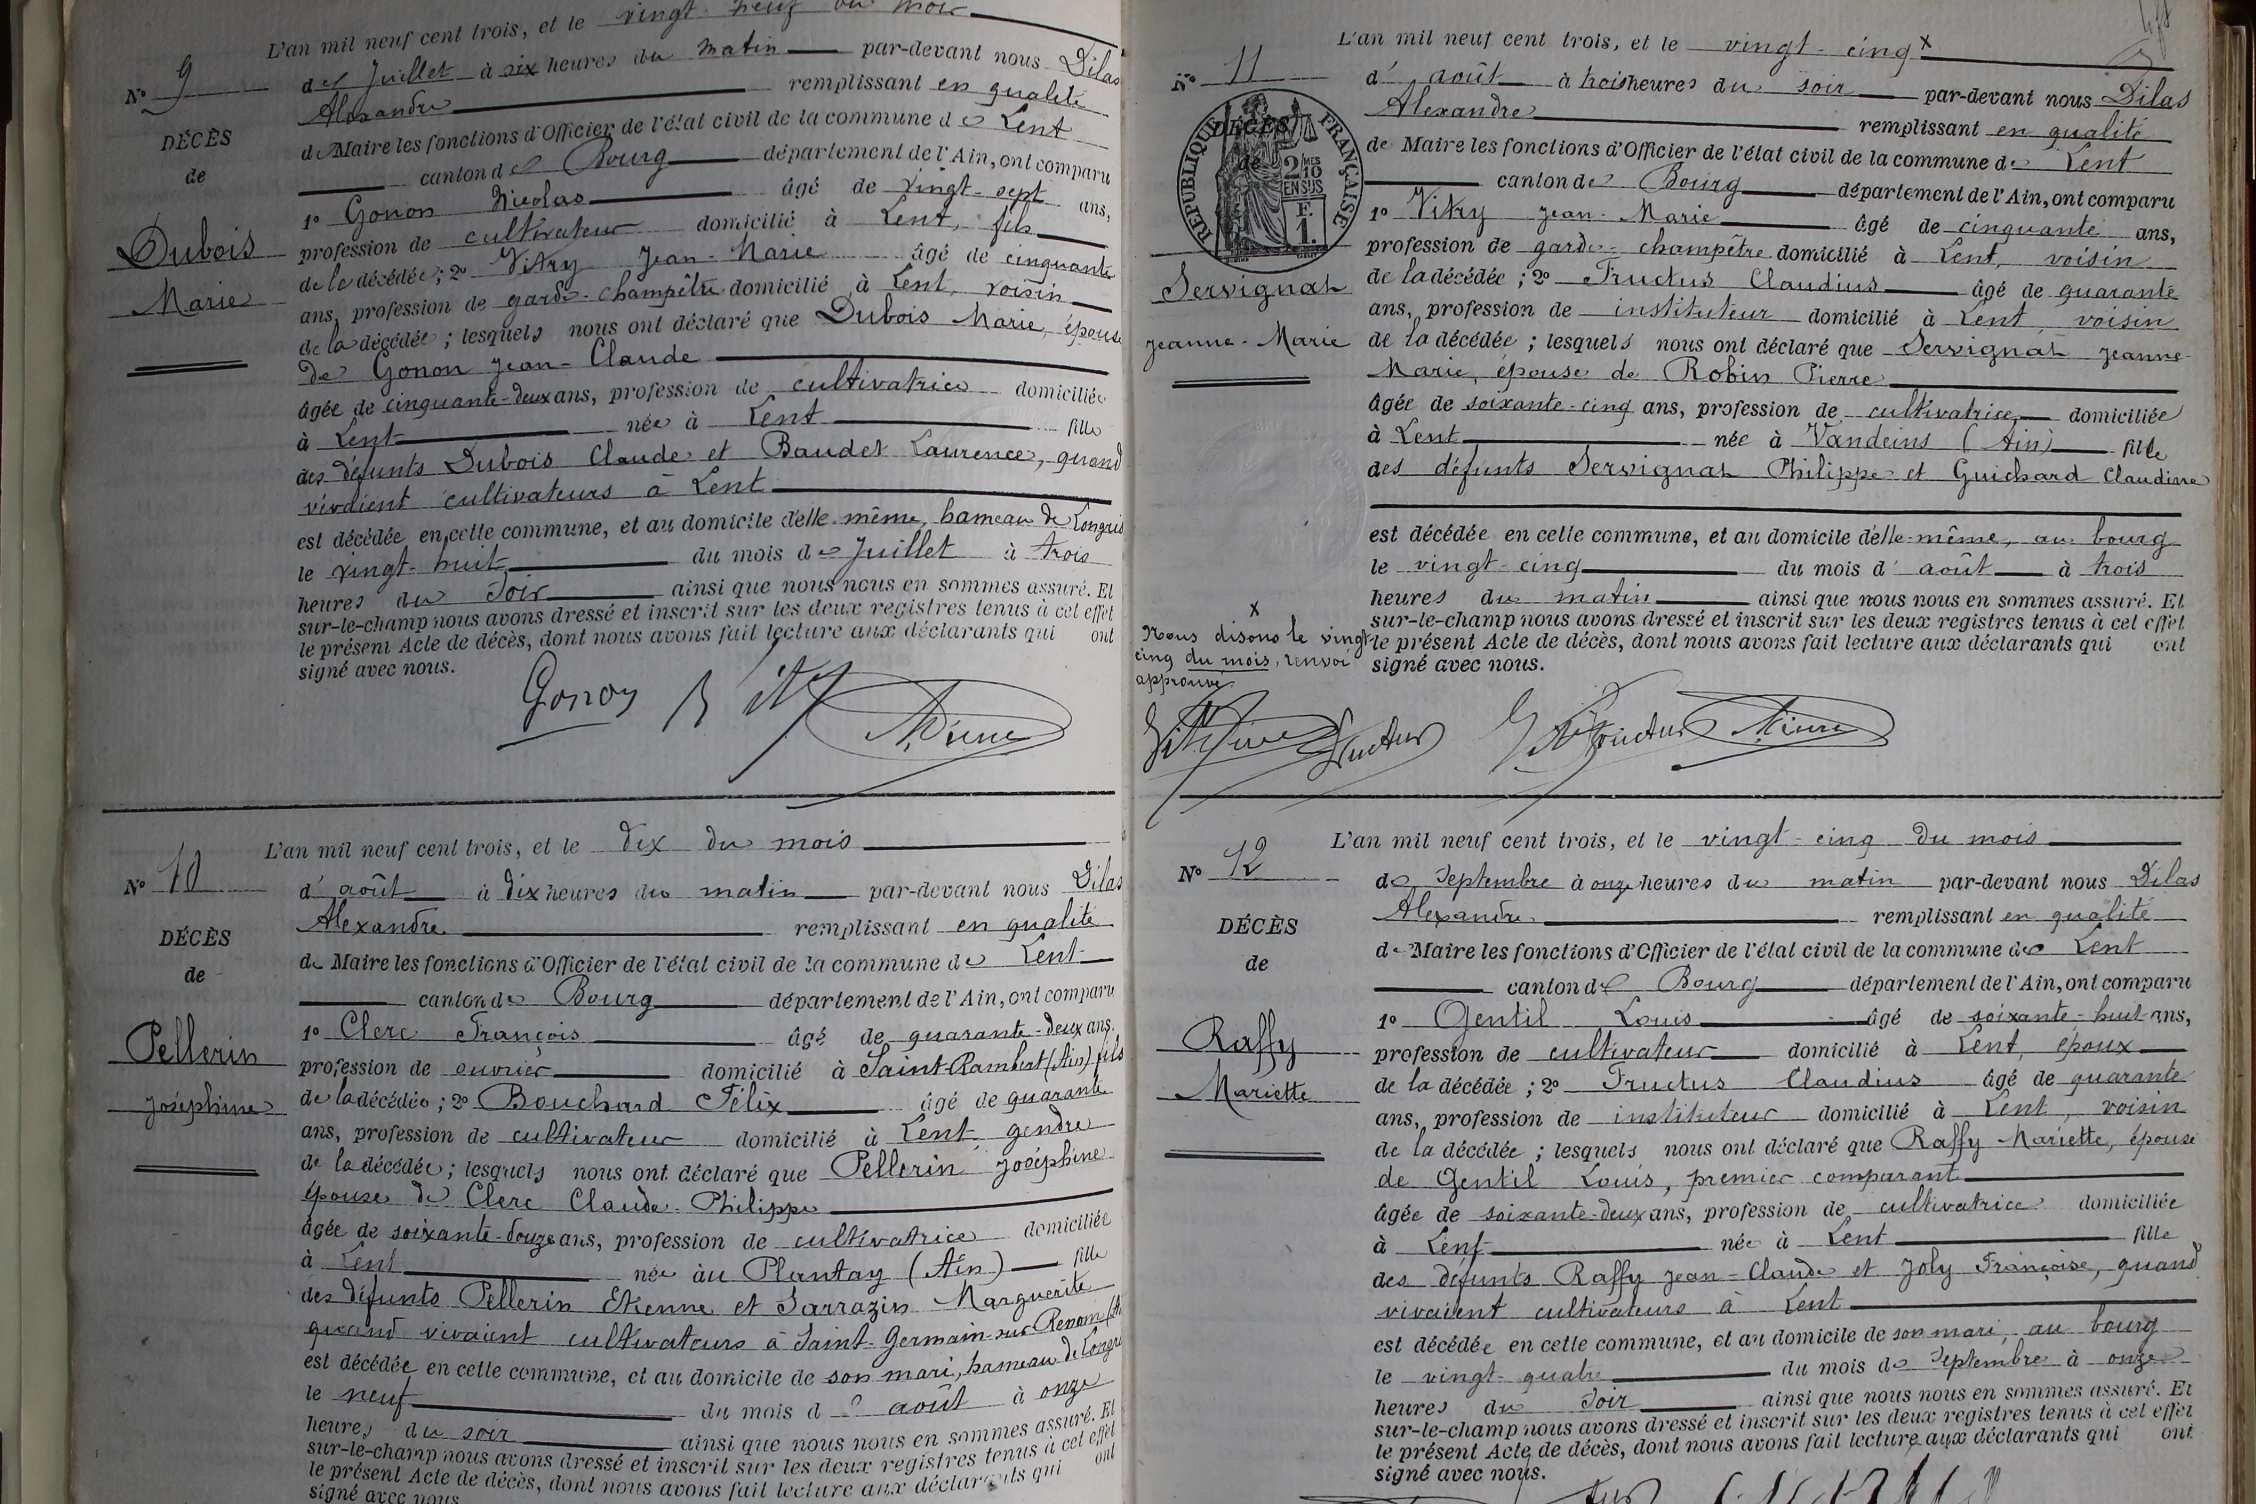 L'an mil neuf cent trois, et le vingt-neuf du mois
N° 9
de Juillet à six heures du matin par-devant nous Dilas
Alexandre remplissant en qualité
DÉCÈS
de Maire les fonctions d'Officier de l'état civil de la commune de Lent
de
canton de Bourg département de l'Ain, ont comparu
1° Gonon Nicolas âgé de vingt-sept ans,
Dubois
profession de cultivateur domicilié à Lent, fils
de la décédée; 2° Vitry Jean-Marie âgé de cinquante
Marie
ans, profession de garde-champêtre domicilié à Lent, voisin
de la décédée; lesquels nous ont déclaré que Dubois Marie, épouse
de Gonon Jean-Claude
âgée de cinquante-deux ans, profession de cultivatrice domiciliée
à Lent née à Lent fille
des défunts Dubois Claude et Baudet Laurence, quand
vivaient cultivateurs à Lent
est décédée en cette commune, et au domicile d'elle-même, hameau de Longris
le vingt-huit du mois de Juillet à trois
heures du soir ainsi que nous nous en sommes assuré. Et
sur-le-champ nous avons dressé et inscrit sur les deux registres tenus à cet effet
le présent Acte de décès, dont nous avons fait lecture aux déclarants qui ont
signé avec nous.
Gonon Vitry
L'an mil neuf cent trois, et le dix du mois
N° 10
d'août à dix heures du matin par-devant nous Dilas
Alexandre remplissant en qualité
DÉCÈS
de Maire les fonctions d'Officier de l'état civil de la commune de Lent
de
canton de Bourg département de l'Ain, ont comparu
1° Clerc François âgé de quarante-deux ans.
Pellerin
profession de ouvrier domicilié à Saint-Rambert (Ain) fils
Joséphine
de la décédée; 2° Bouchard Félix âgé de quarante
ans, profession de cultivateur domicilié à Lent, gendre
de la décédée; lesquels nous ont déclaré que Pellerin Joséphine
épouse de Clerc Claude-Philippe
âgée de soixante-douze ans, profession de cultivatrice domiciliée
à Lent née au Plantay (Ain) fille
des défunts Pellerin Etienne et Sarrazin Marguerite
quand vivaient cultivateurs à Saint-Germain-sur-Renom
est décédée en cette commune, et au domicile de son mari, hameau de Longris
le neuf du mois d'août à onze
heures du soir ainsi que nous nous en sommes assuré. Et
sur-le-champ nous avons dressé et inscrit sur les deux registres tenus à cet effet
le présent Acte de décès, dont nous avons fait lecture aux déclarants qui ont
signé avec nous.
L'an mil neuf cent trois, et le vingt-cinq x
N° 11
d'août à trois heures du soir par-devant nous Dilas
Alexandre remplissant en qualité
DÉCÈS
de
RÉPUBLIQUE FRANÇAISE
2/10 MES
EN SUS
F.
1.
de Maire les fonctions d'Officier de l'état civil de la commune de Lent
canton de Bourg département de l'Ain, ont comparu
1° Vitry Jean-Marie âgé de cinquante ans,
profession de garde-champêtre domicilié à Lent, voisin
Servignat
de la décédée; 2° Fructus Claudius âgé de quarante
ans, profession de instituteur domicilié à Lent, voisin
Jeanne-Marie
de la décédée; lesquels nous ont déclaré que Servignat Jeanne-
Marie, épouse de Robin Pierre
âgée de soixante-cinq ans, profession de cultivatrice domiciliée
à Lent née à Vandeins (Ain) fille
des défunts Servignat Philippe et Guichard Claudine
est décédée en cette commune, et au domicile d'elle-même, au bourg
le vingt-cinq du mois d'août à trois
heures du matin ainsi que nous nous en sommes assuré. Et
sur-le-champ nous avons dressé et inscrit sur les deux registres tenus à cet effet
le présent Acte de décès, dont nous avons fait lecture aux déclarants qui ont
signé avec nous.
x
Nous disons le vingt-
cinq du mois, renvoi
approuvé
Fructus Fructus
L'an mil neuf cent trois, et le vingt-cinq du mois
N° 12
de Septembre à onze heures du matin par-devant nous Dilas
Alexandre remplissant en qualité
DÉCÈS
de Maire les fonctions d'Officier de l'état civil de la commune de Lent
de
canton de Bourg département de l'Ain, ont comparu
1° Gentil Louis âgé de soixante-huit ans,
Raffy
profession de cultivateur domicilié à Lent, époux
Mariette
de la décédée; 2° Fructus Claudius âgé de quarante
ans, profession de instituteur domicilié à Lent, voisin
de la décédée; lesquels nous ont déclaré que Raffy Mariette, épouse
de Gentil Louis, premier comparant
âgée de soixante-deux ans, profession de cultivatrice domiciliée
à Lent née à Lent fille
des défunts Raffy Jean-Claude et Joly Françoise, quand
vivaient cultivateurs à Lent
est décédée en cette commune, et au domicile de son mari, au bourg
le vingt-quatre du mois de Septembre à onze
heures du soir ainsi que nous nous en sommes assuré. Et
sur-le-champ nous avons dressé et inscrit sur les deux registres tenus à cet effet
le présent Acte de décès, dont nous avons fait lecture aux déclarants qui ont
signé avec nous.